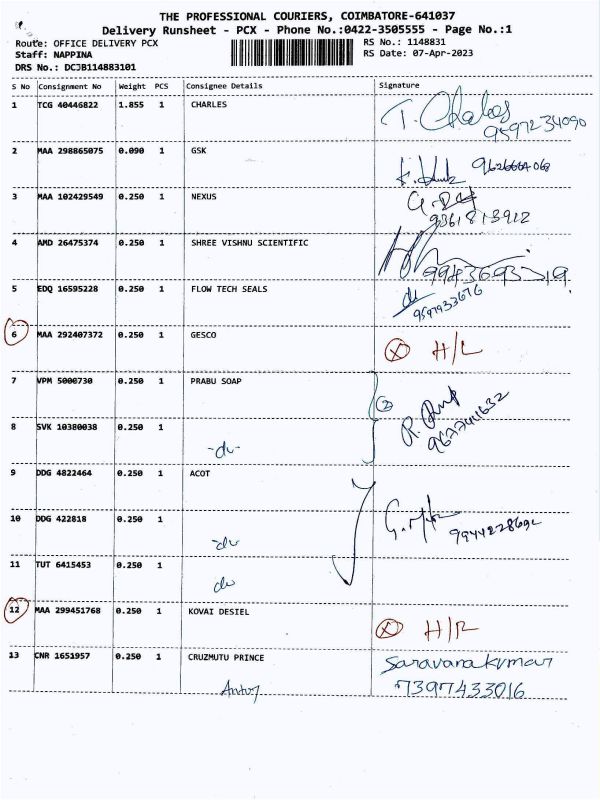 THE PROFESSIONAL COURIERS, COIMBATORE-641037
Delivery Runsheet - PCX - Phone No.:0422-3505555 - Page No.:1
Route: OFFICE DELIVERY PCX RS No.: 1148831
Staff: NAPPINA RS Date: 07-Apr-2023
DRS No.: DCJB114883101
S No Consignment No Weight PCS Consignee Details Signature
1 TCG 40446822 1.855 1 CHARLES T. Charles
9597234090
2 MAA 298865075 0.090 1 GSK
3 MAA 102429549 0.250 1 NEXUS
9361813912
4 AMD 26475374 0.250 1 SHREE VISHNU SCIENTIFIC
5 EDQ 16595228 0.250 1 FLOW TECH SEALS
9597933676
6 MAA 292407372 0.250 1 GESCO X H/L
7 VPM 5000730 0.250 1 PRABU SOAP 2
8 SVK 10380038 0.250 1
-do-
9 DDG 4822464 0.250 1 ACOT
10 DDG 422818 0.250 1
-do-
11 TUT 6415453 0.250 1
do
12 MAA 299451768 0.250 1 KOVAI DESIEL X H/R
13 CNR 1651957 0.250 1 CRUZMUTU PRINCE Saravanakumar
7397433016